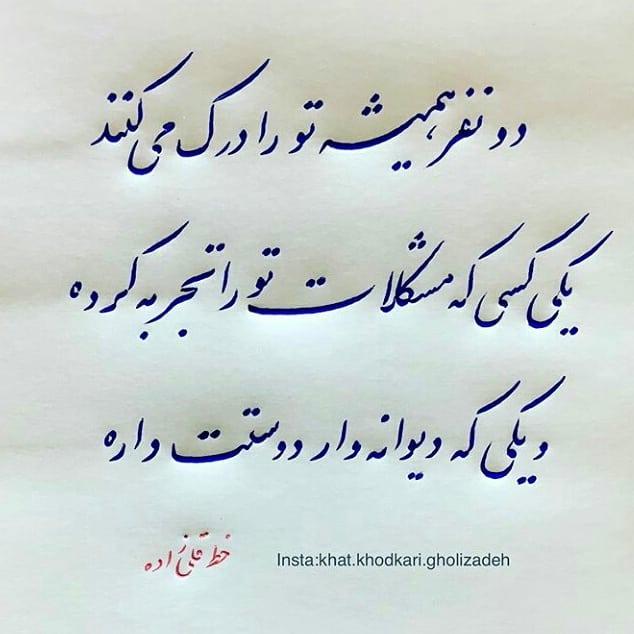 دو نفر، همیشه تو را درک می کنند
یکی کسی که مشکلات تو را تجربه کرده
و یکی که دیوانه وار دوستت داره
خط قلی زاده
Insta:khat.khodkari.gholizadeh